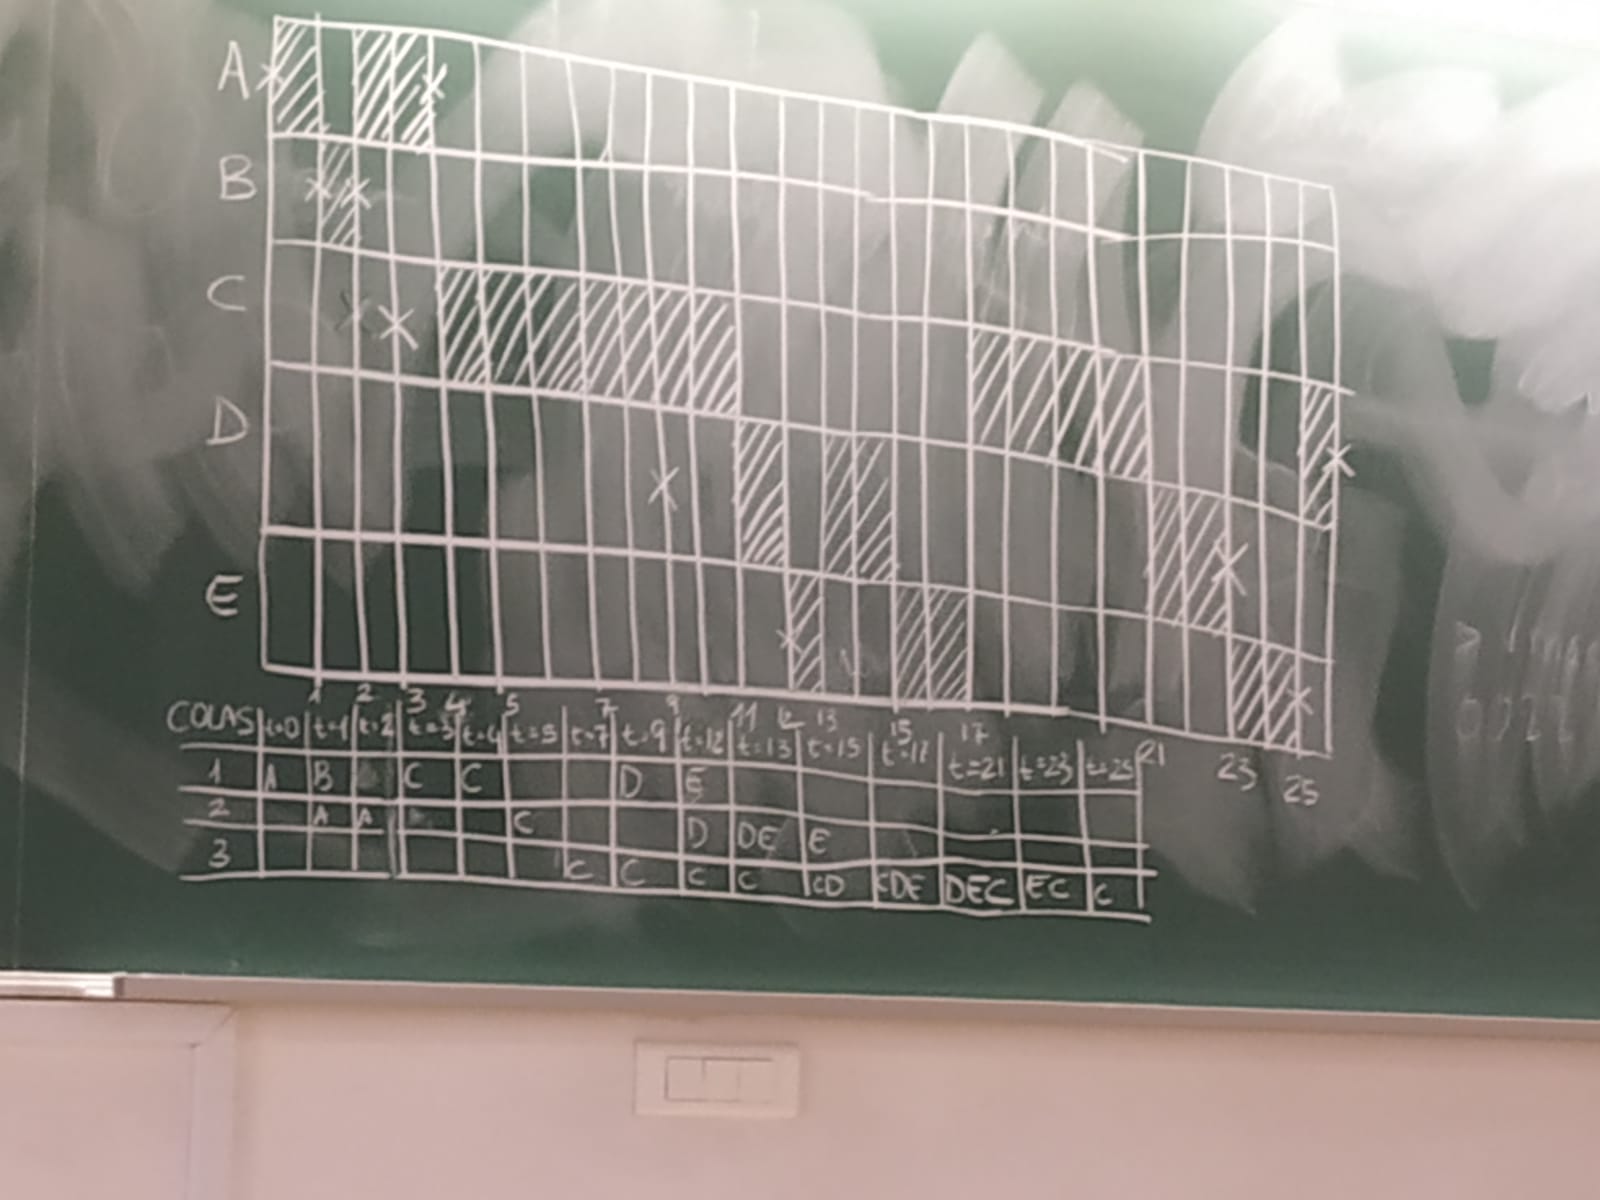 A
B
C
D
E
1 2 3 4 5 7 9 11 12 13 15 17 21 23 25
COLAS t=0 t=1 t=2 t=3 t=4 t=5 t=7 t=9 t=12 t=13 t=15 t=17 t=21 t=23 t=25
1 A B C C D E
2 A A C D DE E
3 C C C C CD CDE DEC EC C